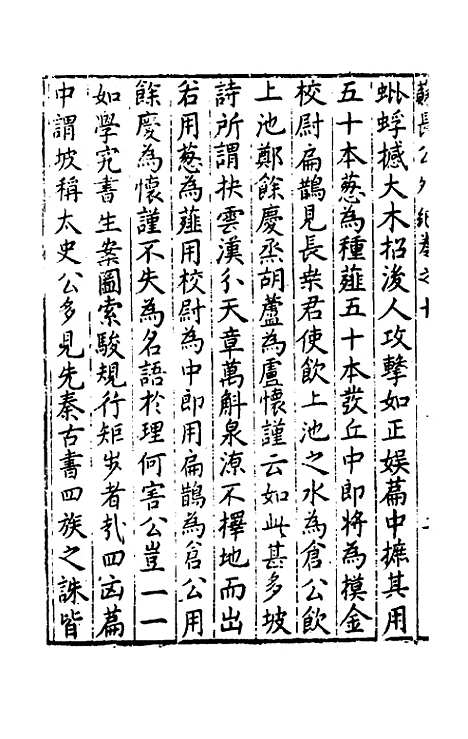 蘇長公外紀卷之十
蚍蜉撼大木招後人攻擊如正娱篇中摭其用
五十本葱為種薤五十本發丘中郎將為模金
校尉扁鵲見長桒君使飲上池之水為倉公飲
上池鄭餘慶烝胡蘆為盧懷謹云如此甚多坡
詩所謂抉雲漢分天章萬斛泉源不擇地而出
若用葱為薤用校尉為中郎用扁鵲為倉公用
餘慶為懷謹不失為名語於理何害公豈一一
如學究書生案圖索駿規行矩步者㢤四凶篇
中謂坡稱太史公多見先秦古書四族之誅皆